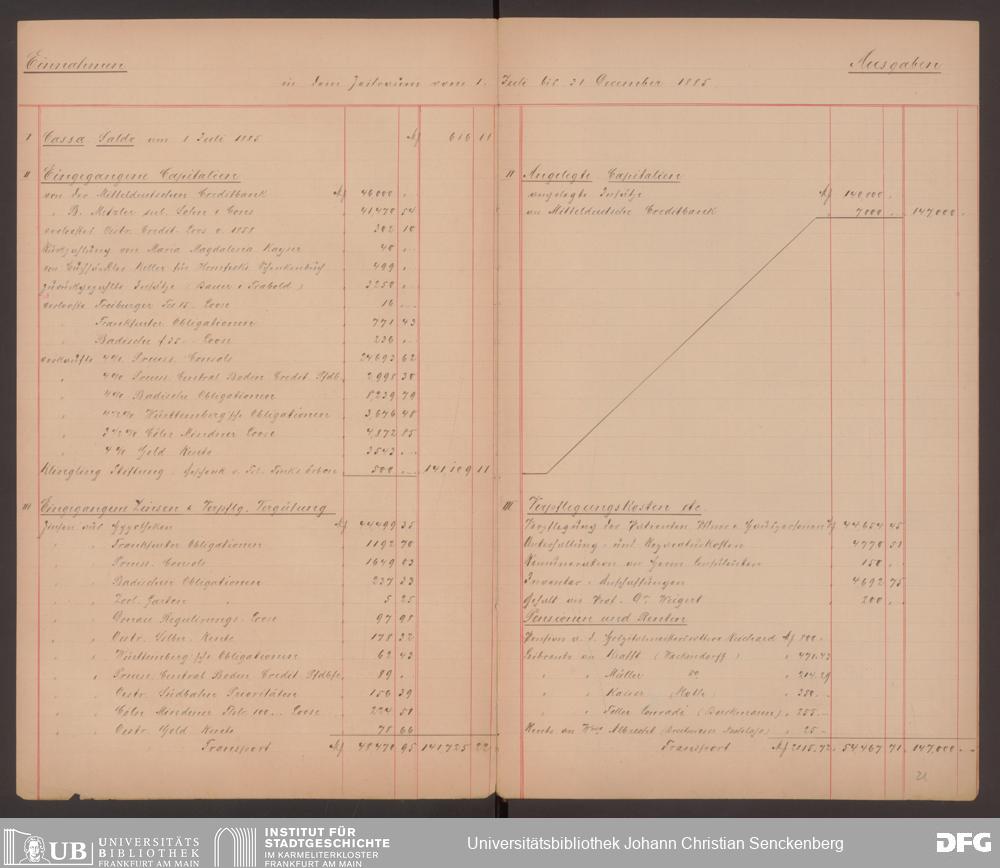 Einnahmen
Ausgaben
in dem Zeitraum vom 1. Juli bis 31 December 1885.
I Cassa Saldo am 1 Juli 1885 M 616 11
II Eingegangene Capitalien
von der Mitteldeutschen Creditbank M 46000 .
" B. Metzler sel. Sohn & Cons 41,470 54
Oestr. Credit Loos v. 1858 302 10
Rückzahlung von Maria Magdalena Kayser 40 .
Keller für 499 .
zurückgezahlte Insätze (Bauer & Trabold) 3250 .
verlooste Freiburger Fcs 15 Loose 16
" Frankfurter Obligationen 771 43
" Badische f 35 Loose 236 .
verkaufte 4% Preuss. Consols 24693 62
" 4% Preuss. Central Boden Credit Pfdb. 2,998 30
" 4% Badische Obligationen 8,239 79
" 4½% Württemberg'sche Obligationen 3,676 48
" 3½% Cöln Mindner Loose 4,872 85
" 4% Gold Rente 3543 .
Stiftung, Geschenk v. 500 . 141,109 11
III Eingegangene Zinsen & Verpfleg. Vergütung
Zinsen aus Hypotheken M 44499 35
" " Frankfurter Obligationen 1192 70
" " Preuss. Consols 1649 03
" " Badischen Obligationen 237 33
" " Zool. Garten " 5 25
" " Donau Regulirungs Loose 97 98
" " Oestr. Silber Rente 178 32
" " Württemberg'sche Obligationen 62 43
" " Preuss. Central Boden Credit Pfdbfe. 89 .
" " Oestr. Südbahn Prioritäten 150 39
" " Cöln Mindener Thlr. 100 Loose 224 51
" " Oestr. Gold Rente 78 66
Transport M 48470 95 141,725 22
II Angelegte Capitalien
angelegte Insätze M 140,000 .
an Mitteldeutsche Creditbank 7000 . 147,000 .
III Verpflegungskosten etc.
Verpflegung der Patienten 44,654 45
Unterhaltung und Reparaturkosten 4770 51
Remuneration an Herrn 150 .
Inventar Anschaffungen 4692 75
Gehalt an Prof. Dr. Weigert 200 .
Pensionen und Renten
Pension a. d. Reichard M 800 .
Leibrente an Krafft (Wackendorff) " 471.43
" " Müller do " 214.29
" " Kaiser (Molle) " 350 .
" " Feller Conradi (Brockmann) " 255 .
Rente an Wwe Albrecht " 25
Transport M 2115.72 54,467 71 147,000 .
21
UB UNIVERSITÄTS
BIBLIOTHEK
FRANKFURT AM MAIN
INSTITUT FÜR
STADTGESCHICHTE
IM KARMELITERKLOSTER
FRANKFURT AM MAIN
Universitätsbibliothek Johann Christian Senckenberg
DFG